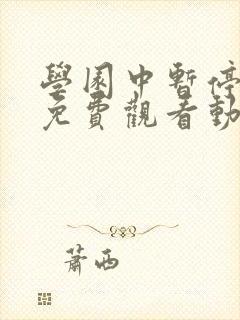 學園中暫停
免費觀看動
蕭西